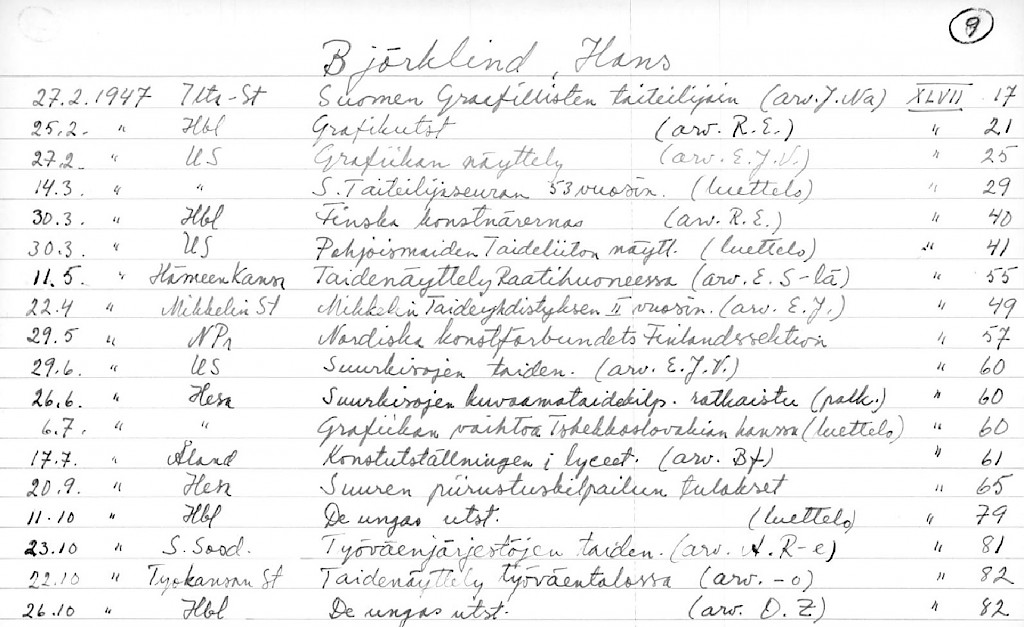 9
Björklind, Hans
27.2.1947 Ilta-St Suomen Graafillisten taiteilijain (arv. J. Na) XLVII 17
25.2. " Hbl Grafikutst (arv. R.E.) " 21
27.2. " US Grafiikan näyttely (arv. E.J.V.) " 25
14.3. " " S. Taiteilijaseuran 53 vuosin. (luettelo) " 29
30.3. " Hbl Finska konstnärernas (arv. R.E.) " 40
30.3. " US Pohjoismaiden Taideliiton näytt. (luettelo) " 41
11.5. " Hämeen Kansa Taidenäyttely Raatihuoneessa (arv. E. S-lä) " 55
22.4 " Mikkelin St Mikkelin Taideyhdistyksen II vuosin. (arv. E.J.) " 49
29.5 " NPr Nordiska konstförbundets Finlandssektion " 57
29.6. " US Suurkisojen taiden. (arv. E.J.V.) " 60
26.6. " Hesa Suurkisojen kuvaamataidekilp. ratkaistu (palk.) " 60
6.7. " " Grafiikan vaihtoa Tshekkoslovakian kanssa (luettelo) " 60
17.7. " Åland Konstutställningen i lyceet. (arv. Bf) " 61
20.9. " Hesa Suuren piirustuskilpailun tulokset " 65
11.10 " Hbl De ungas utst. (luettelo) " 79
23.10 " S. Sosd. Työväenjärjestöjen taiden. (arv. A. R-e) " 81
22.10 " Työkansan St Taidenäyttely työväentalossa (arv. -o) " 82
26.10 " Hbl De ungas utst. (arv. O. Z) " 82